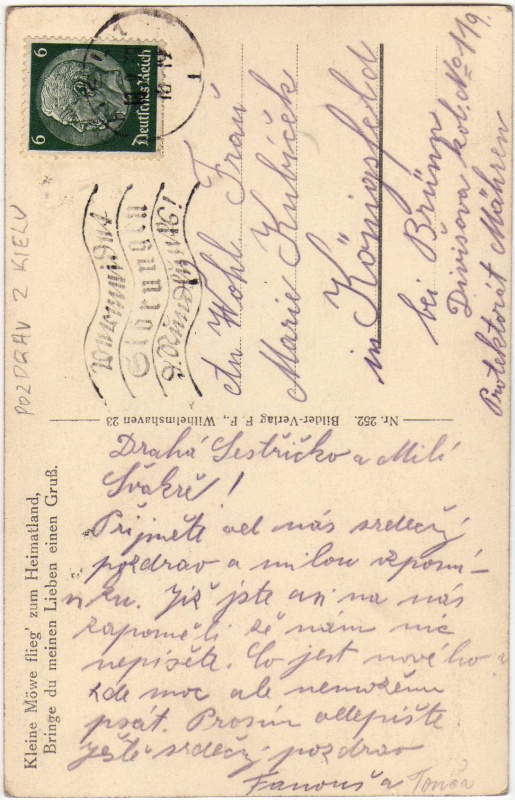 6 Deutsches Reich 6
16-19
Störungen
An Wohl. Frau
Marie Kubíček
in Königsfeld
bei Brünn
Divisova kol. No 119.
Protektorát Mähren
POZDRAV Z KIELU
Nr. 252. Bilder-Verlag F. F., Wilhelmshaven 23
Kleine Möwe flieg' zum Heimatland,
Bringe du meinen Lieben einen Gruß.
Drahá Sestřičko a Milí
Švakře!
Přijměte od nás srdečý
pozdrav a milou vzpomí-
nku. Již jste asi na nás
zapoměli že nám nic
nepíšete. Co jest nového u
zde moc ale nemožému
psát. Prosím odepište
ještě srdečý pozdrav
Fanouš a Tonča